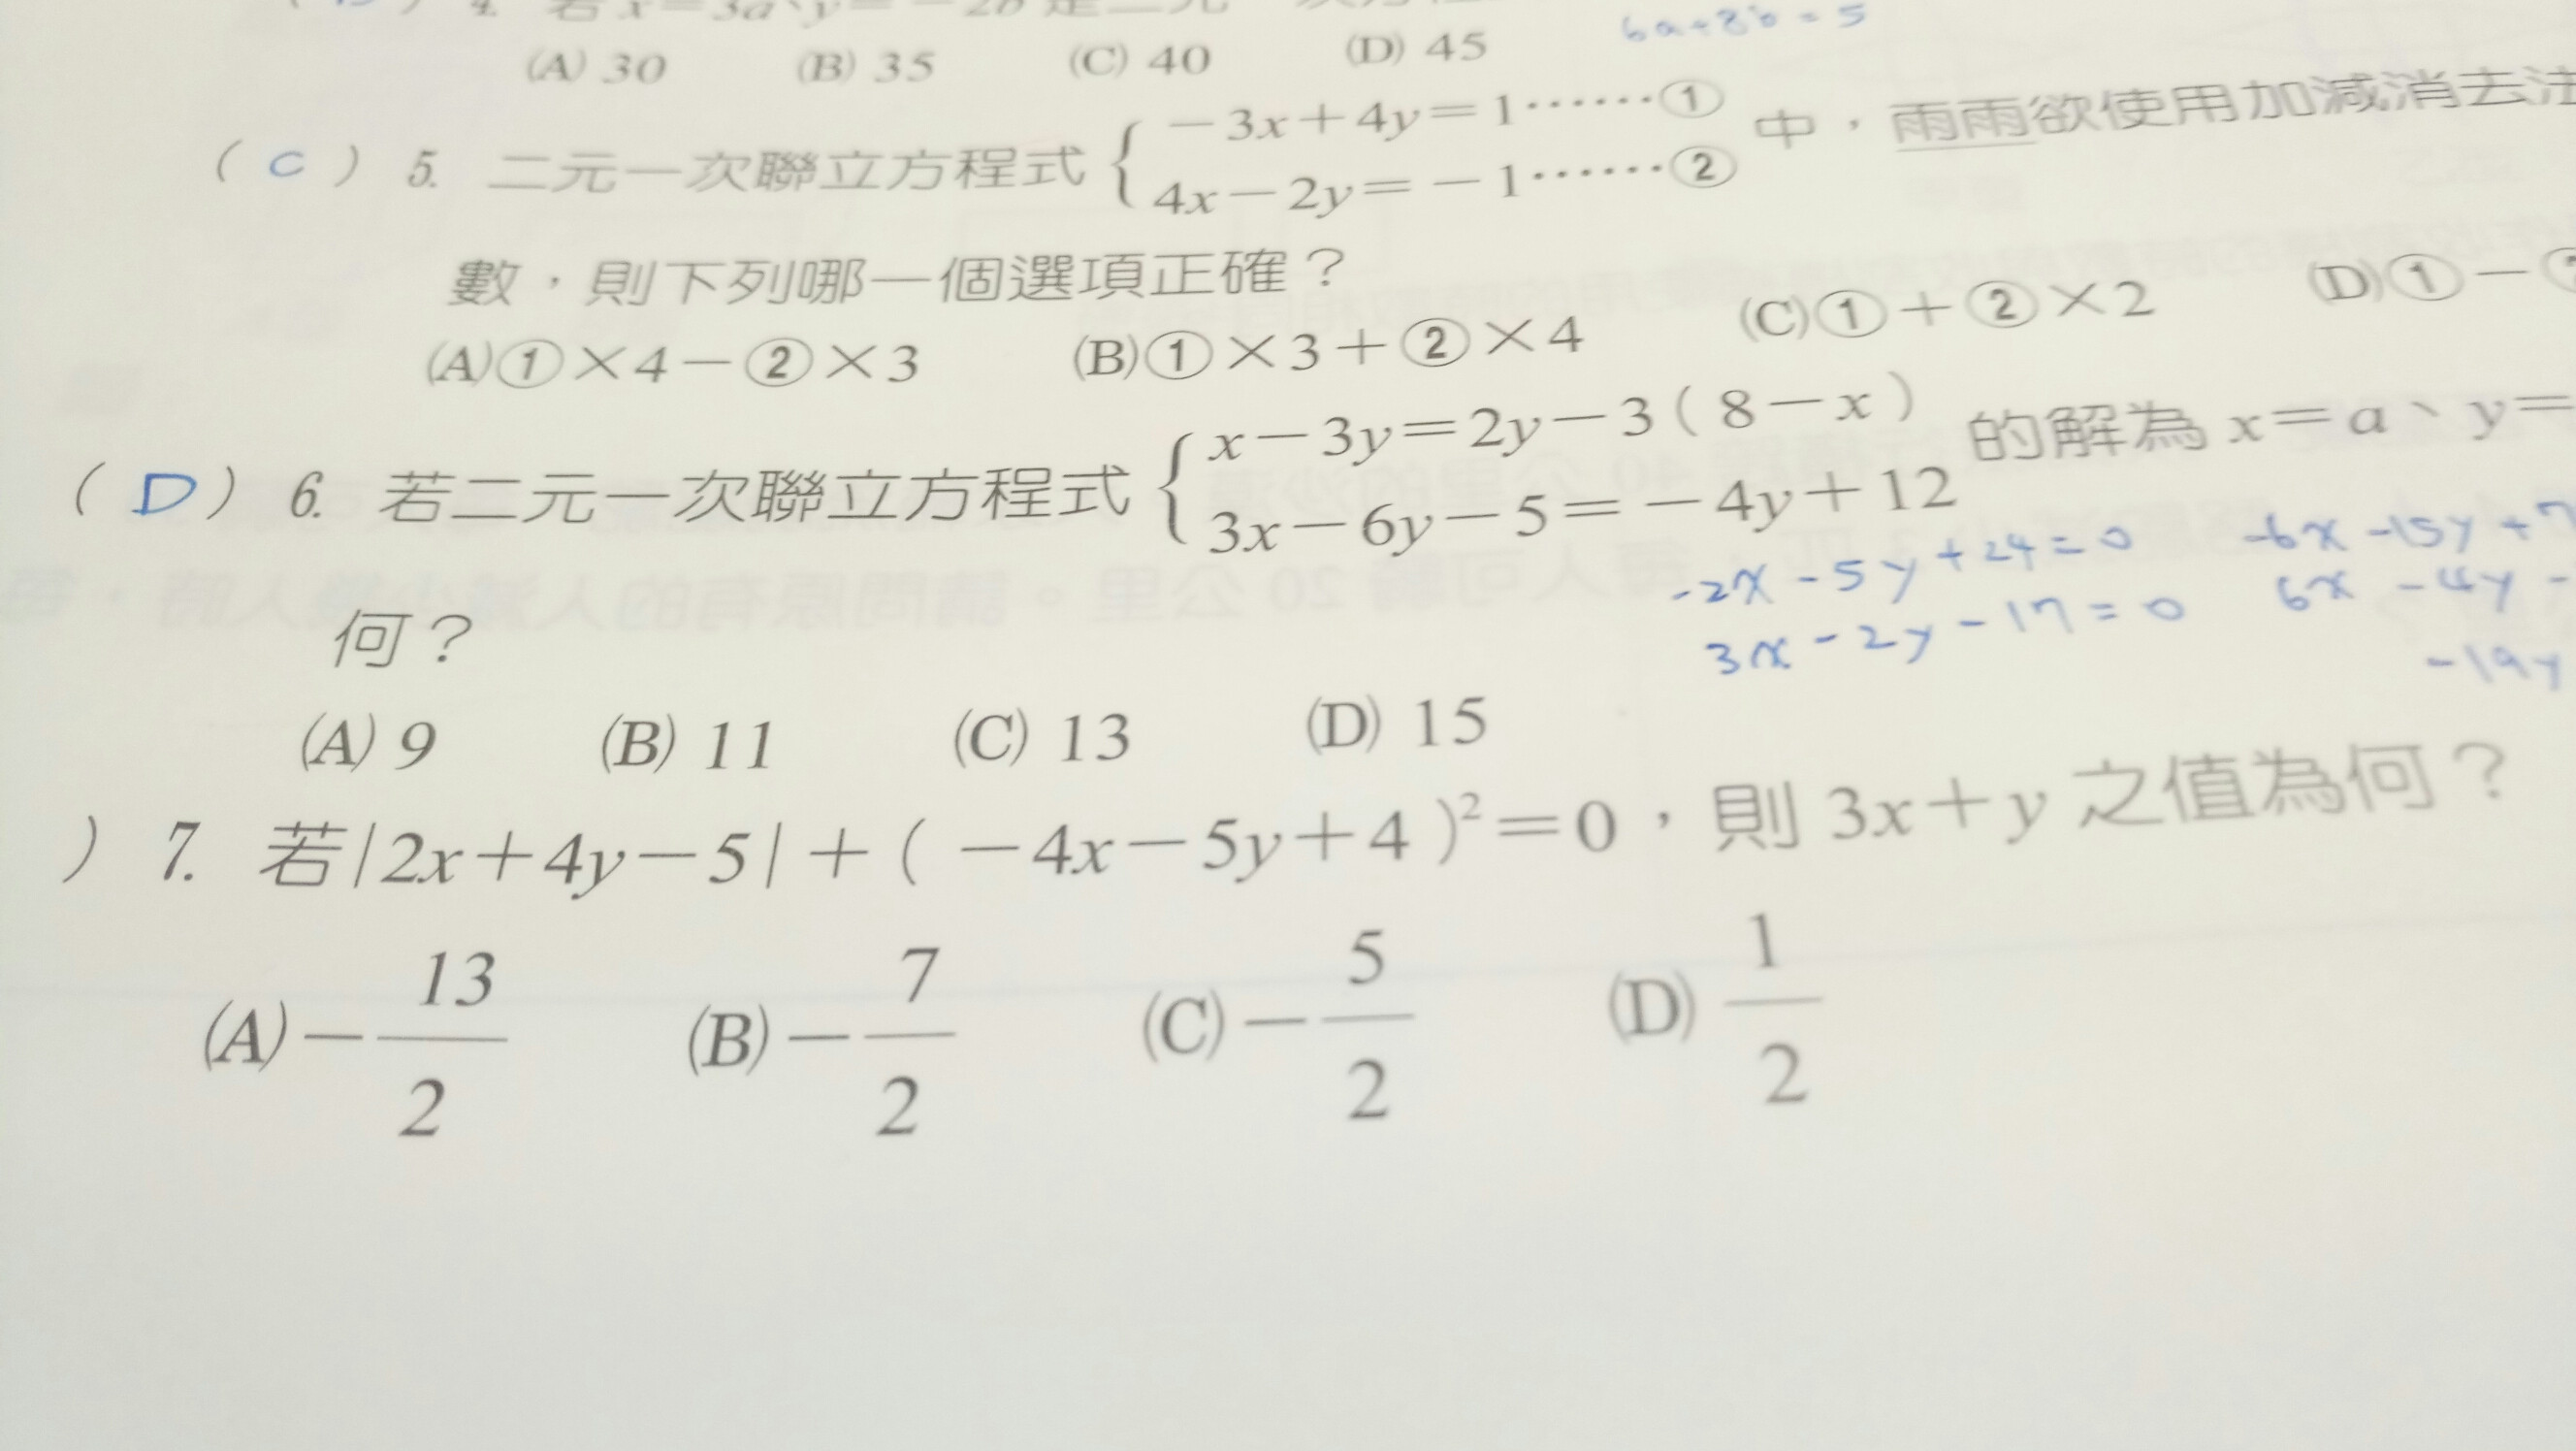 4. 若 x=3a、y=-2b 是二元一次方程
(A) 30 (B) 35 (C) 40 (D) 45 6a+8b=5
( C ) 5. 二元一次聯立方程式 { -3x+4y=1……① 中，雨雨欲使用加減消去法
4x-2y=-1……②
數，則下列哪一個選項正確？
(A)①×4-②×3 (B)①×3+②×4 (C)①+②×2 (D)①-
( D ) 6. 若二元一次聯立方程式 { x-3y=2y-3(8-x) 的解為 x=a、y=
3x-6y-5=-4y+12
-2x-5y+24=0 -6x-15y+7
何？ 3x-2y-17=0 6x-4y-
-19y
(A) 9 (B) 11 (C) 13 (D) 15
) 7. 若|2x+4y-5|+(-4x-5y+4)²=0，則 3x+y 之值為何？
(A)-13/2 (B)-7/2 (C)-5/2 (D) 1/2